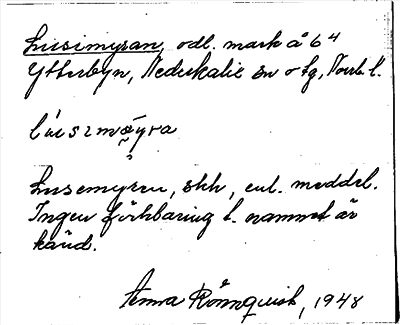 Lusimyran, odl. mark å 64
Ytterbyn, Nederkalix sn o tg, Norrb. l.
lúsımø̀yra
?
Lusemyren, skh, enl. meddel.
Ingen förklaring t. namnet är
känd.
Anna Rönnquist, 1948